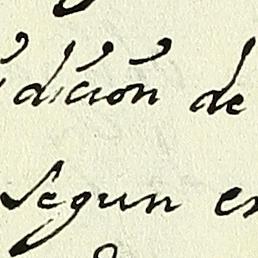 dicion de
segun en